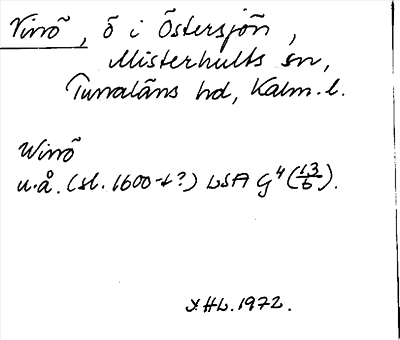 Virrö, ö i Östersjön,
Misterhults sn,
Tunaläns hd, Kalm. l.
Wirrö
u.å. (sl. 1600-t?) LSA G⁴ (13/6).
HL. 1972.